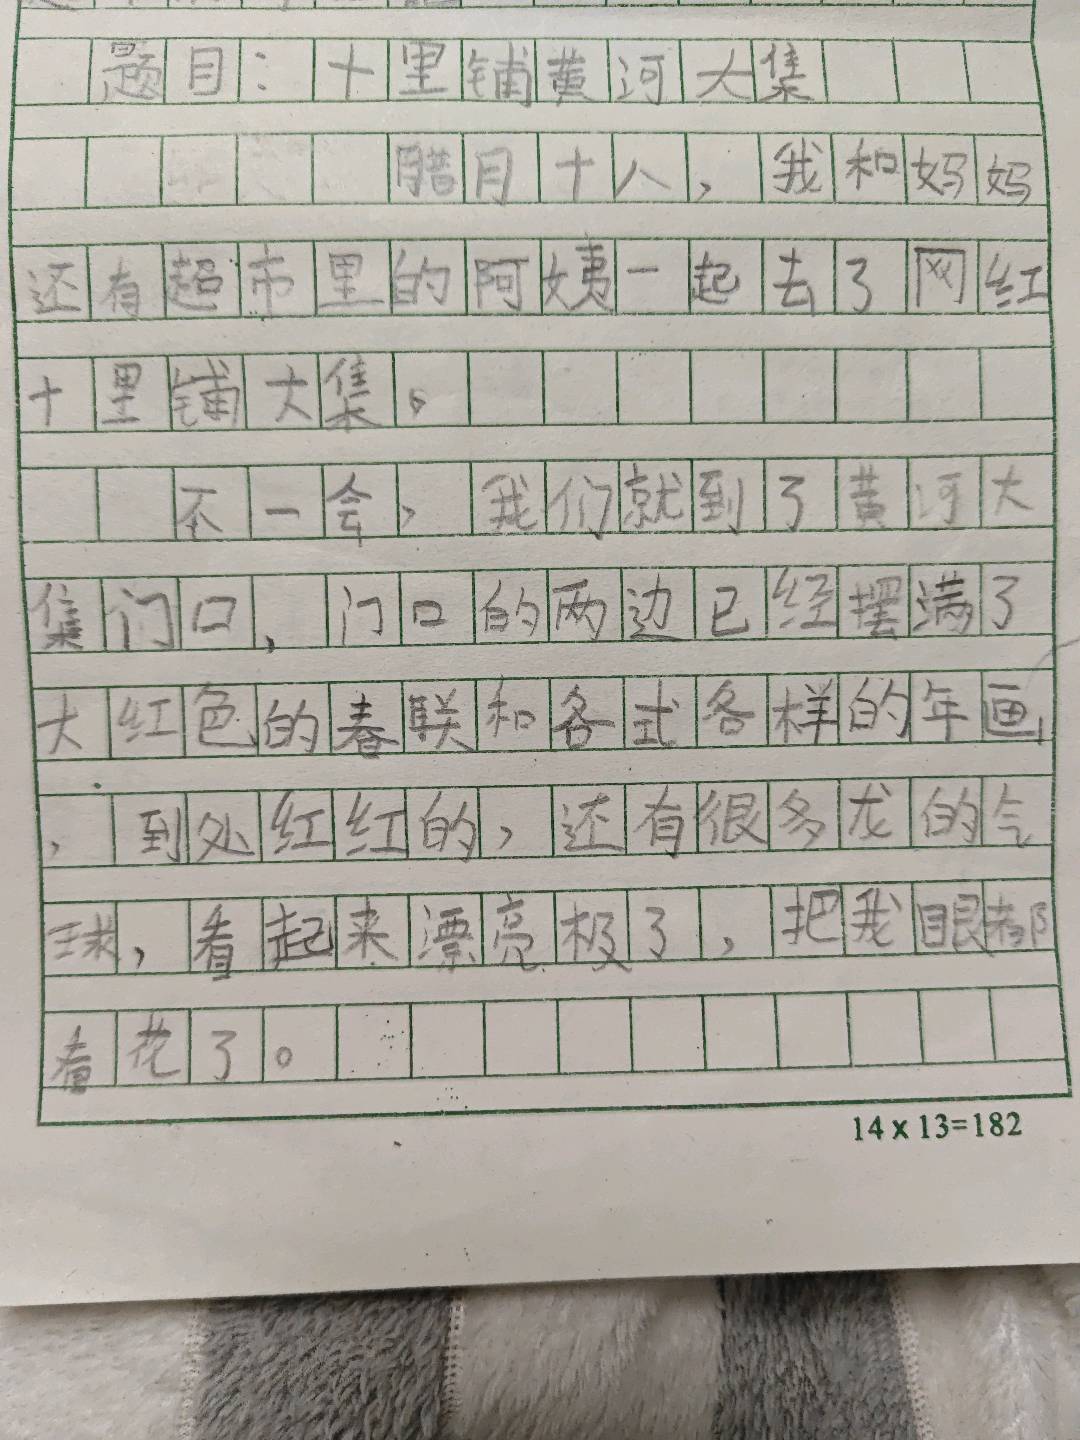 题目：十里铺黄河大集
腊月十八，我和妈妈
还有超市里的阿姨一起去了网红
十里铺大集。
不一会，我们就到了黄河大
集门口，门口的两边已经摆满了
大红色的春联和各式各样的年画
，到处红红的，还有很多龙的气
球，看起来漂亮极了，把我眼都
看花了。
14x13=182